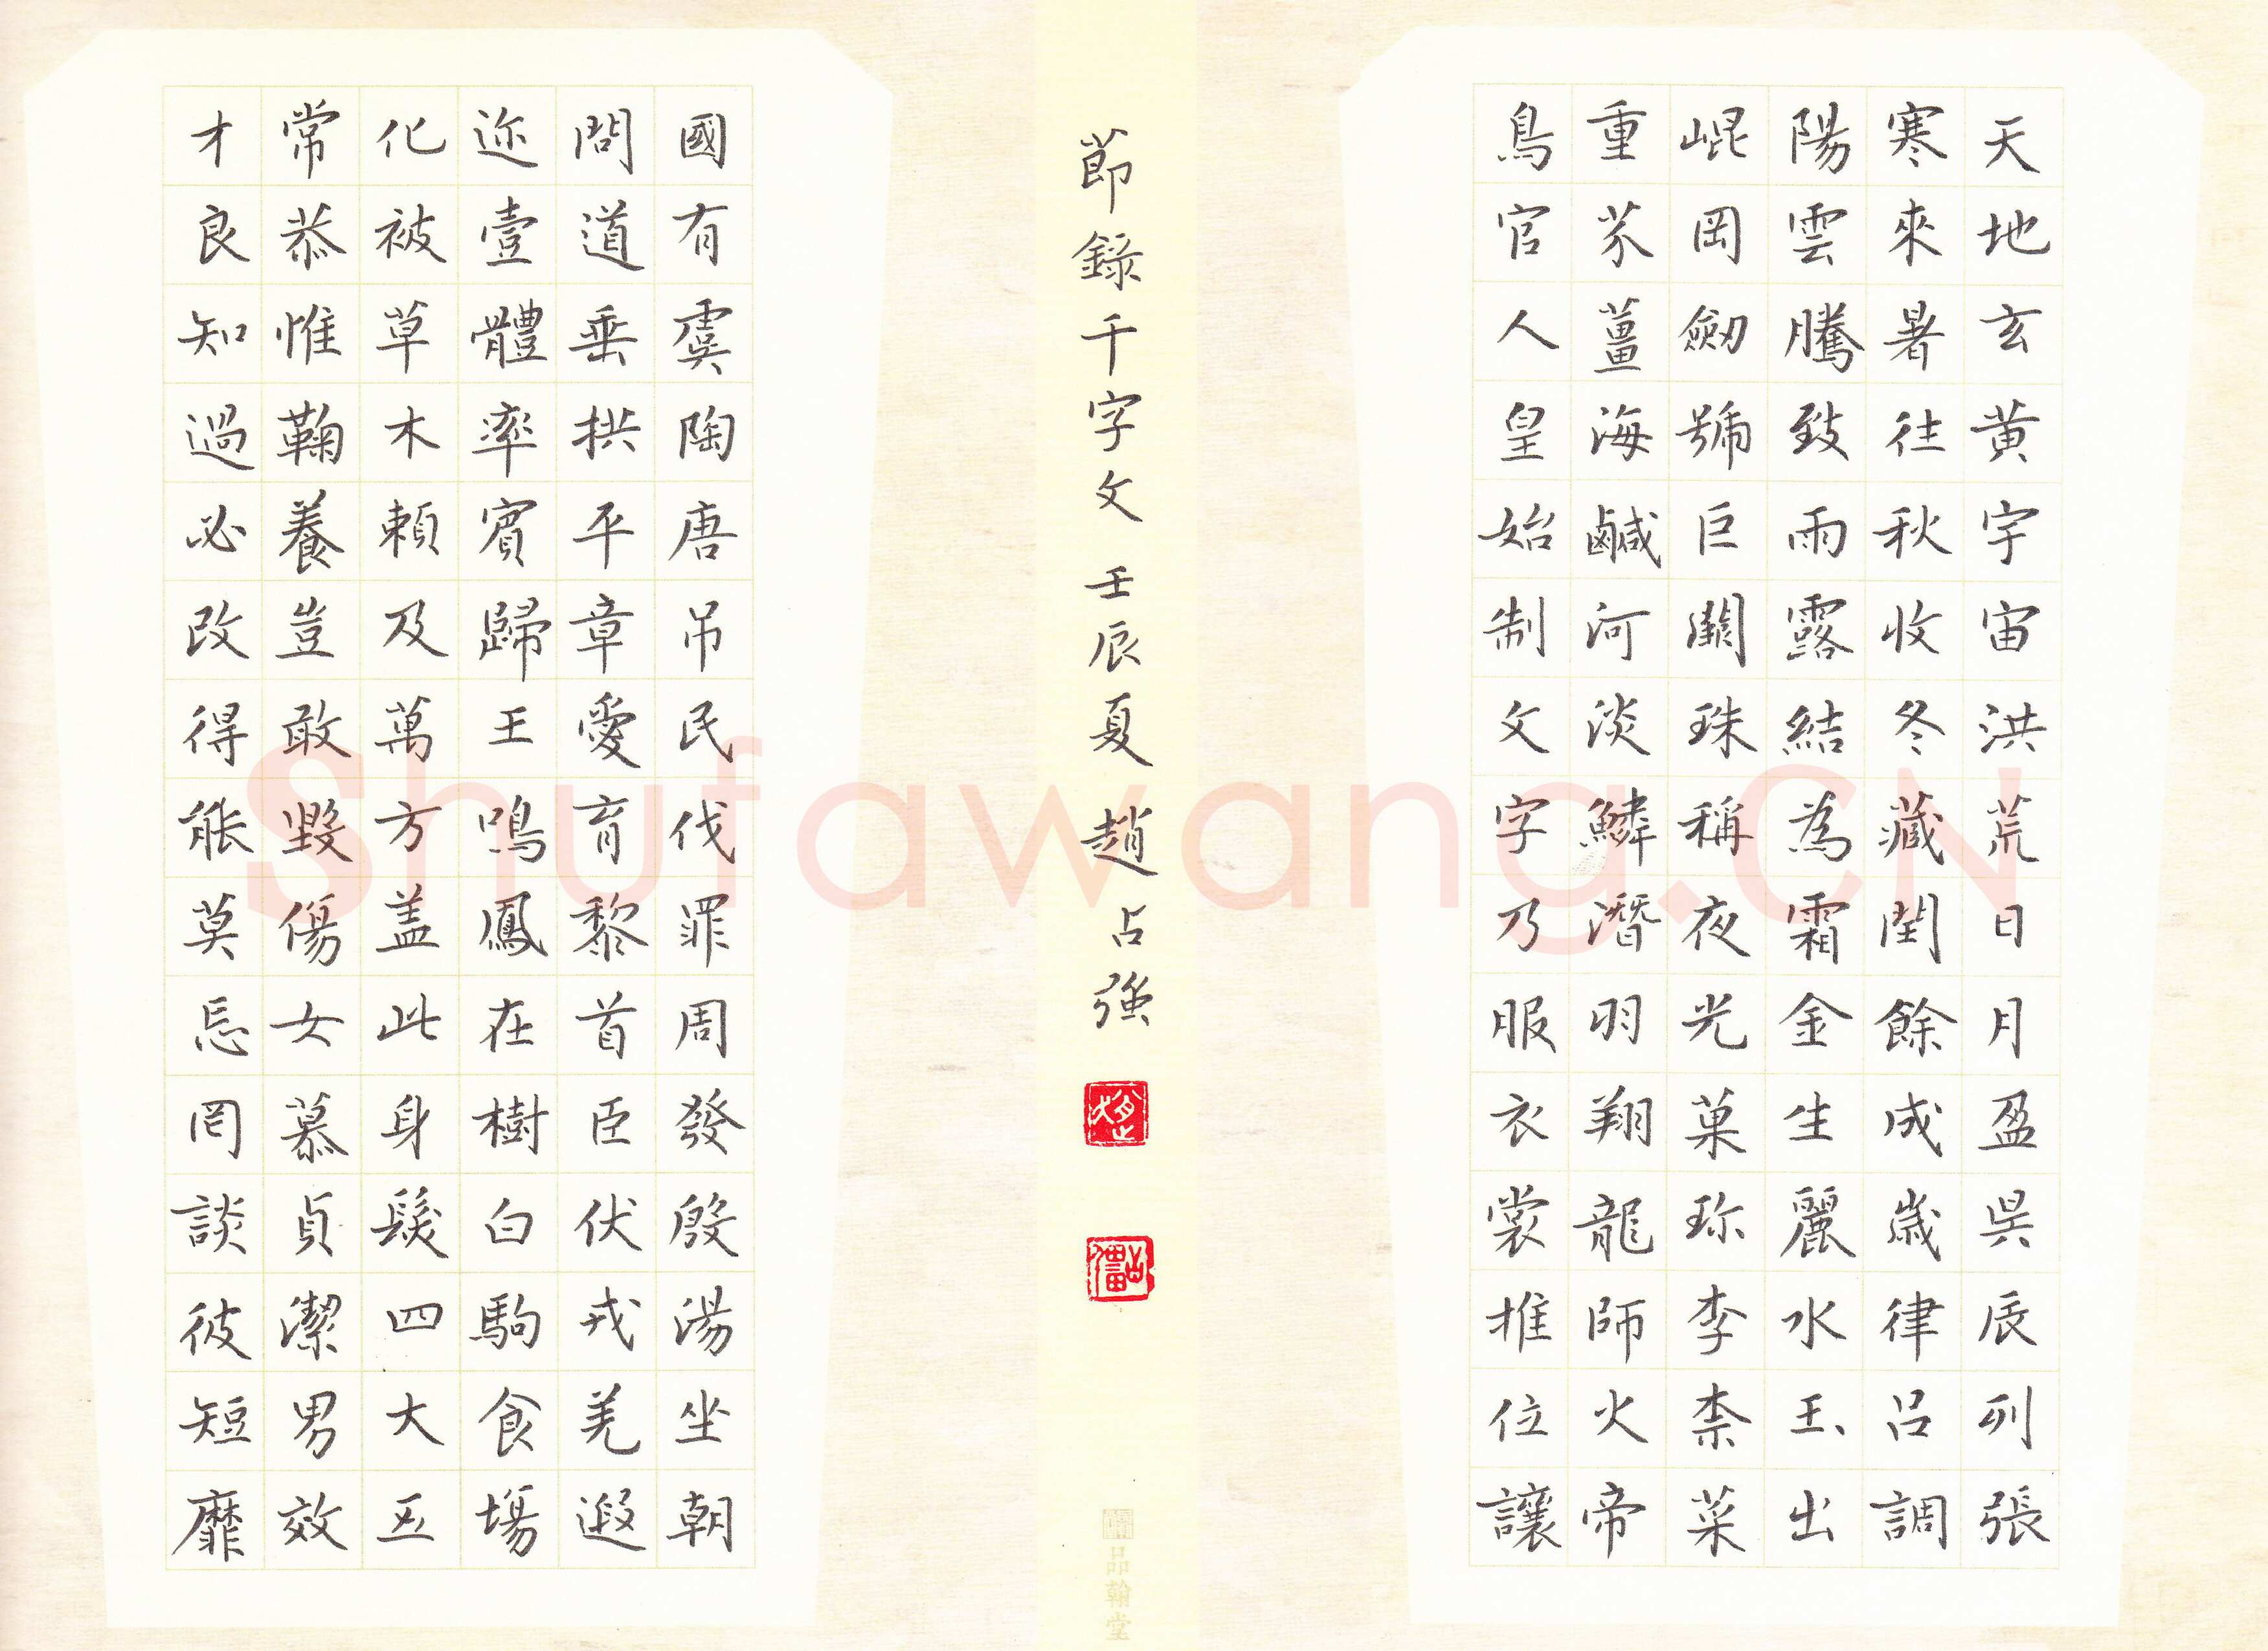 天地玄黄宇宙洪荒日月盈昃辰列張
寒來暑往秋收冬藏閏餘成歲律呂調
陽雲騰致雨露結為霜金生麗水玉出
崐岡劒號巨闕珠稱夜光菓珎李柰菜
重芥薑海鹹河淡鱗潛羽翔龍師火帝
鳥官人皇始制文字乃服衣裳推位讓
國有虞陶唐吊民伐罪周發殷湯坐朝
問道垂拱平章愛育黎首臣伏戎羌遐
迩壹體率賓歸王鳴鳳在樹白駒食場
化被草木賴及萬方盖此身髮四大五
常恭惟鞠養豈敢毀傷女慕貞潔男效
才良知過必改得能莫忘罔談彼短靡
節錄千字文 壬辰夏 趙占強
品翰堂
Shufawang.CN